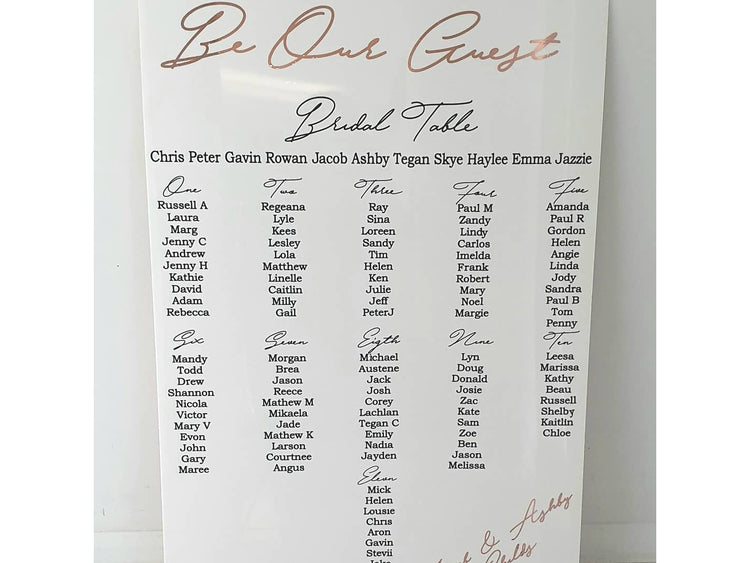 Be Our Guest
Bridal Table
Chris Peter Gavin Rowan Jacob Ashby Tegan Skye Haylee Emma Jazzie
One
Russell A
Laura
Marg
Jenny C
Andrew
Jenny H
Kathie
David
Adam
Rebecca
Two
Regeana
Lyle
Kees
Lesley
Lola
Matthew
Linelle
Caitlin
Milly
Gail
Three
Ray
Sina
Loreen
Sandy
Tim
Helen
Ken
Julie
Jeff
PeterJ
Four
Paul M
Zandy
Lindy
Carlos
Imelda
Frank
Robert
Mary
Noel
Margie
Five
Amanda
Paul R
Gordon
Helen
Angie
Linda
Jody
Sandra
Paul B
Tom
Penny
Six
Mandy
Todd
Drew
Shannon
Nicola
Victor
Mary V
Evon
John
Gary
Maree
Seven
Morgan
Brea
Jason
Reece
Mathew M
Mikaela
Jade
Mathew K
Larson
Courtnee
Angus
Eigth
Michael
Austene
Jack
Josh
Corey
Lachlan
Tegan C
Emily
Nadia
Jayden
Nine
Lyn
Doug
Donald
Josie
Zac
Kate
Sam
Zoe
Ben
Jason
Melissa
Ten
Leesa
Marissa
Kathy
Beau
Russell
Shelby
Kaitlin
Chloe
Eleven
Mick
Helen
Lousie
Chris
Aron
Gavin
Stevii
& Ashby